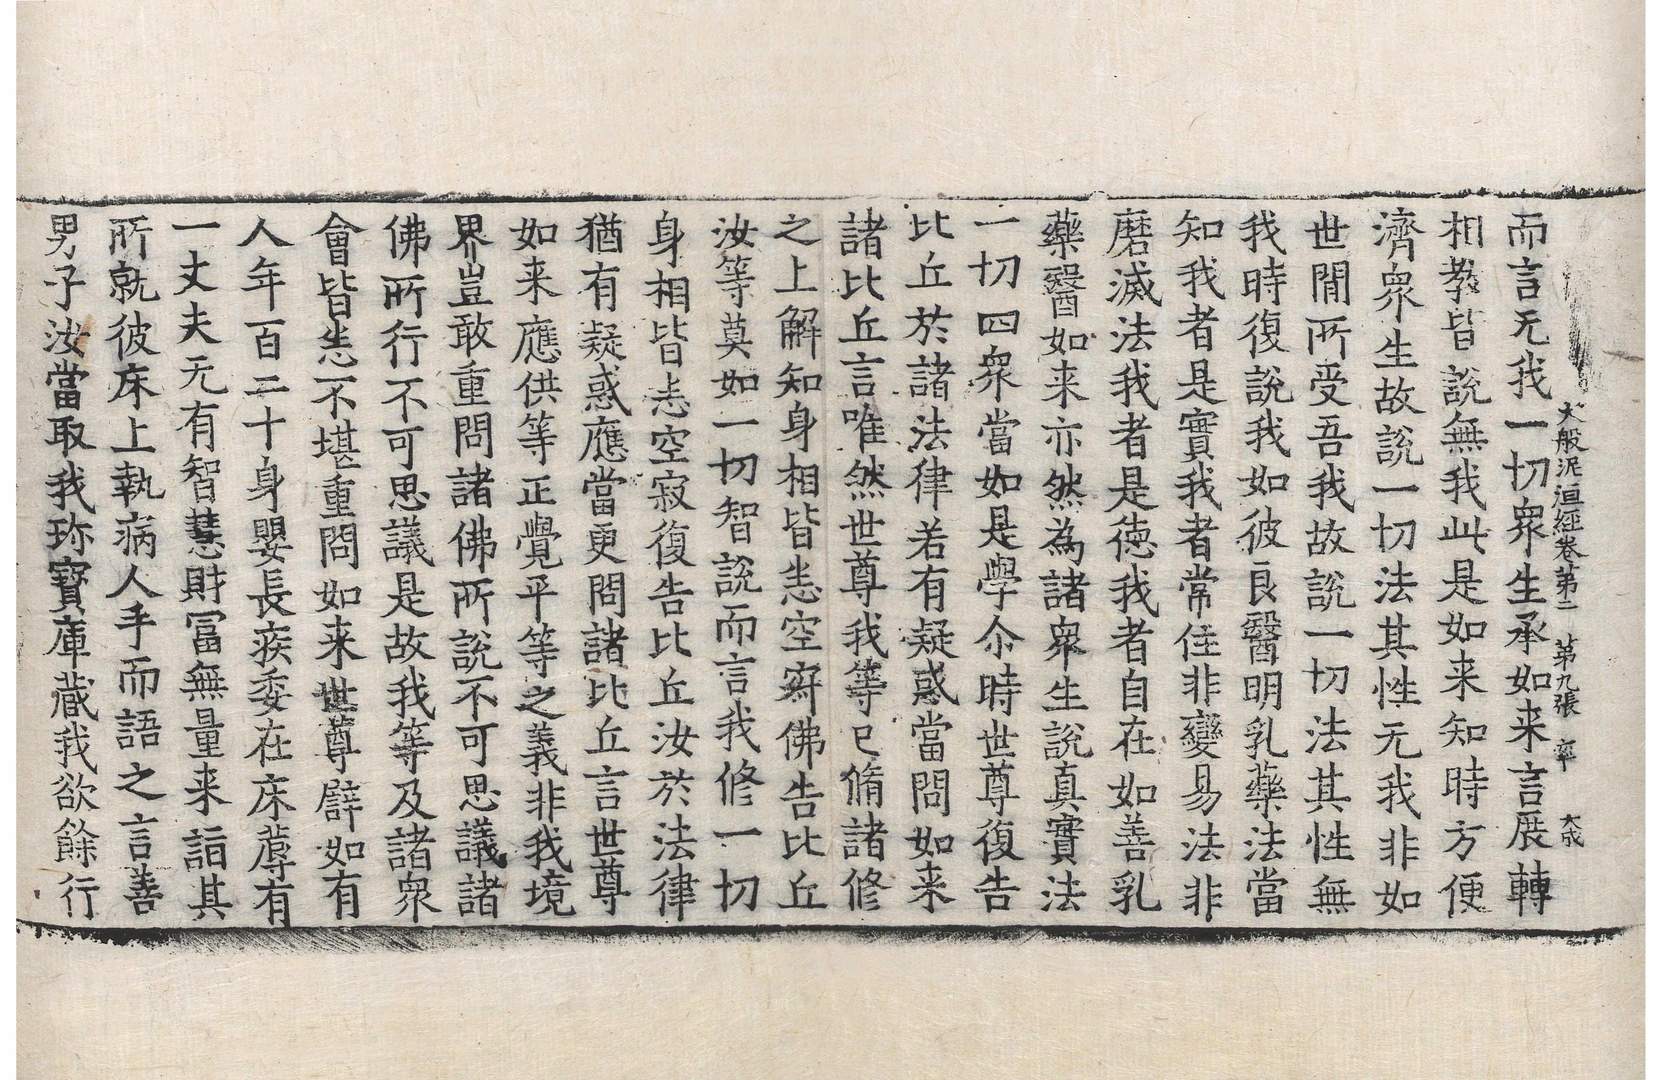 大般泥洹經卷第二 第九張 率 大成
而言无我一切衆生承如来言展轉
相教皆說無我此是如来知時方便
濟衆生故說一切法其性无我非如
世閒所受吾我故說一切法其性無
我時復說我如彼良醫明乳藥法當
知我者是實我者常住非變易法非
磨滅法我者是德我者自在如善乳
藥醫如来亦然為諸衆生說真實法
一切四衆當如是學尒時世尊復告
比丘於諸法律若有疑惑當問如来
諸比丘言唯然世尊我等已脩諸修
之上解知身相皆悉空寂佛告比丘
汝等莫如一切智說而言我修一切
身相皆悉空寂復告比丘汝於法律
猶有疑惑應當更問諸比丘言世尊
如来應供等正覺平等之義非我境
界豈敢重問諸佛所說不可思議諸
佛所行不可思議是故我等及諸衆
會皆悉不堪重問如来世尊譬如有
人年百二十身嬰長疾委在床蓐有
一丈夫无有智慧財冨無量来詣其
所就彼床上執病人手而語之言善
男子汝當取我珎寳庫藏我欲餘行